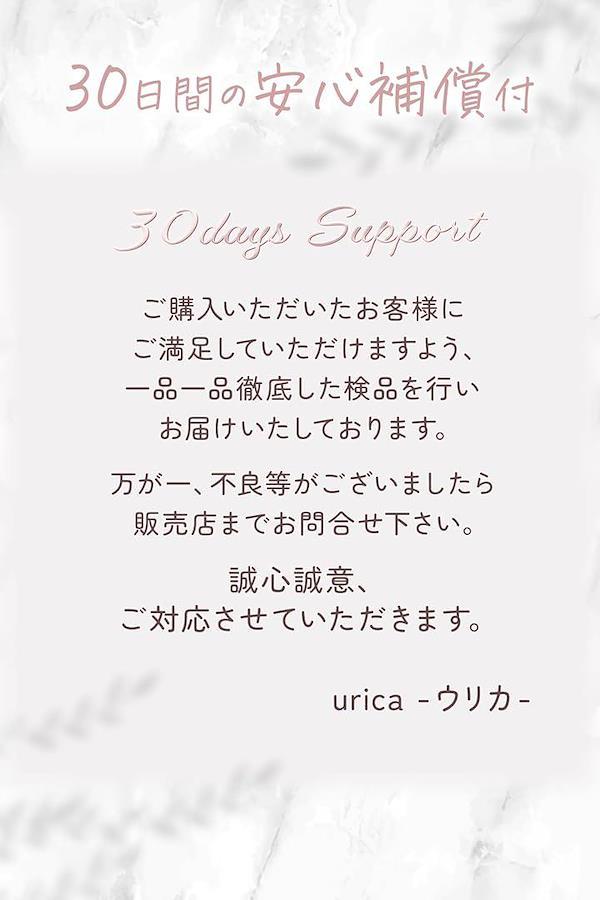 30日間の安心補償付
30days Support
ご購入いただいたお客様に
ご満足していただけますよう、
一品一品徹底した検品を行い
お届けいたしております。
万が一、不良等がございましたら
販売店までお問合せ下さい。
誠心誠意、
ご対応させていただきます。
urica -ウリカ-